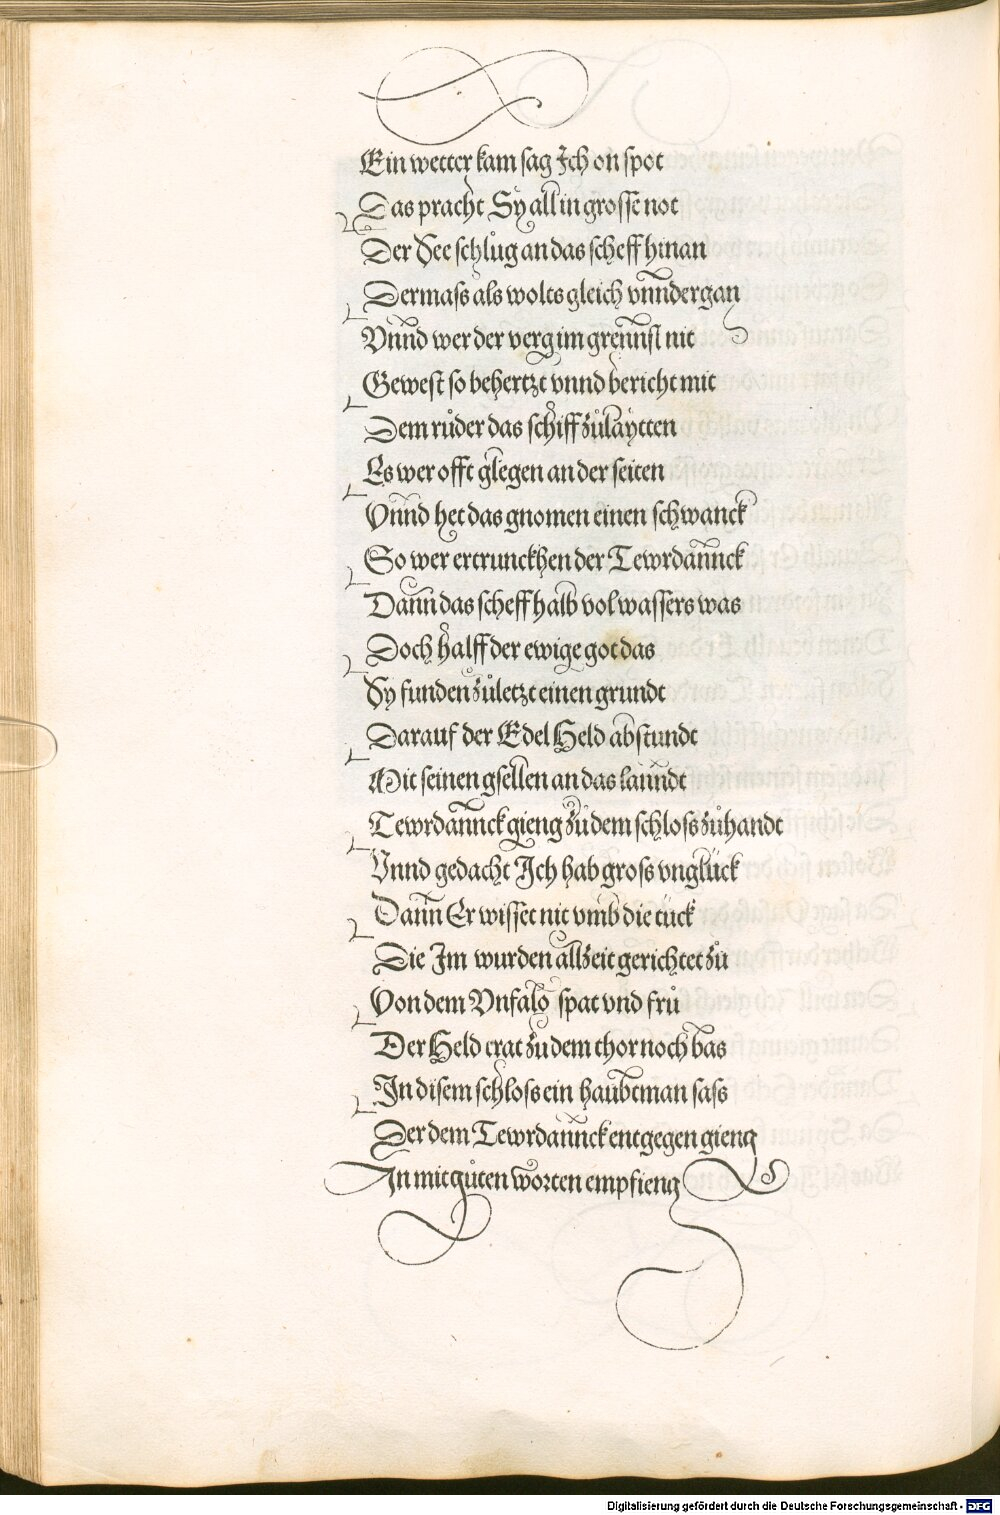 Ein wetter kam sag Ich on spot
Das pracht Sy all in grosse not
Der See schlůg an das scheff hinan
Dermass als wolts gleich vnndergan
Vnnd wer der verg im grennsl nit
Gewest so behertzt vnnd bericht mit
Dem růder das schiff zůlaytten
Es wer offt glegen an der seiten
Vnnd het das gnomen einen schwanck
So wer ertrunckhen der Tewrdannck
Dann das scheff halb vol wassers was
Doch halff der ewige got das
Sy funden zůletzt einen grundt
Darauf der Edel Held abstundt
Mit seinen gsellen an das lanndt
Tewrdannck gieng zů dem schloss zůhandt
Vnnd gedacht Ich hab gross vnglück
Dann Er wisset nit vmb die tück
Die Im wurden allzeit gerichtet zů
Von dem Vnfalo spat vnd frů
Der Held trat zů dem thor noch bas
In disem schloss ein haubtman sass
Der dem Tewrdannck entgegen gieng
In mit gůten worten empfieng
Digitalisierung gefördert durch die Deutsche Forschungsgemeinschaft - DFG